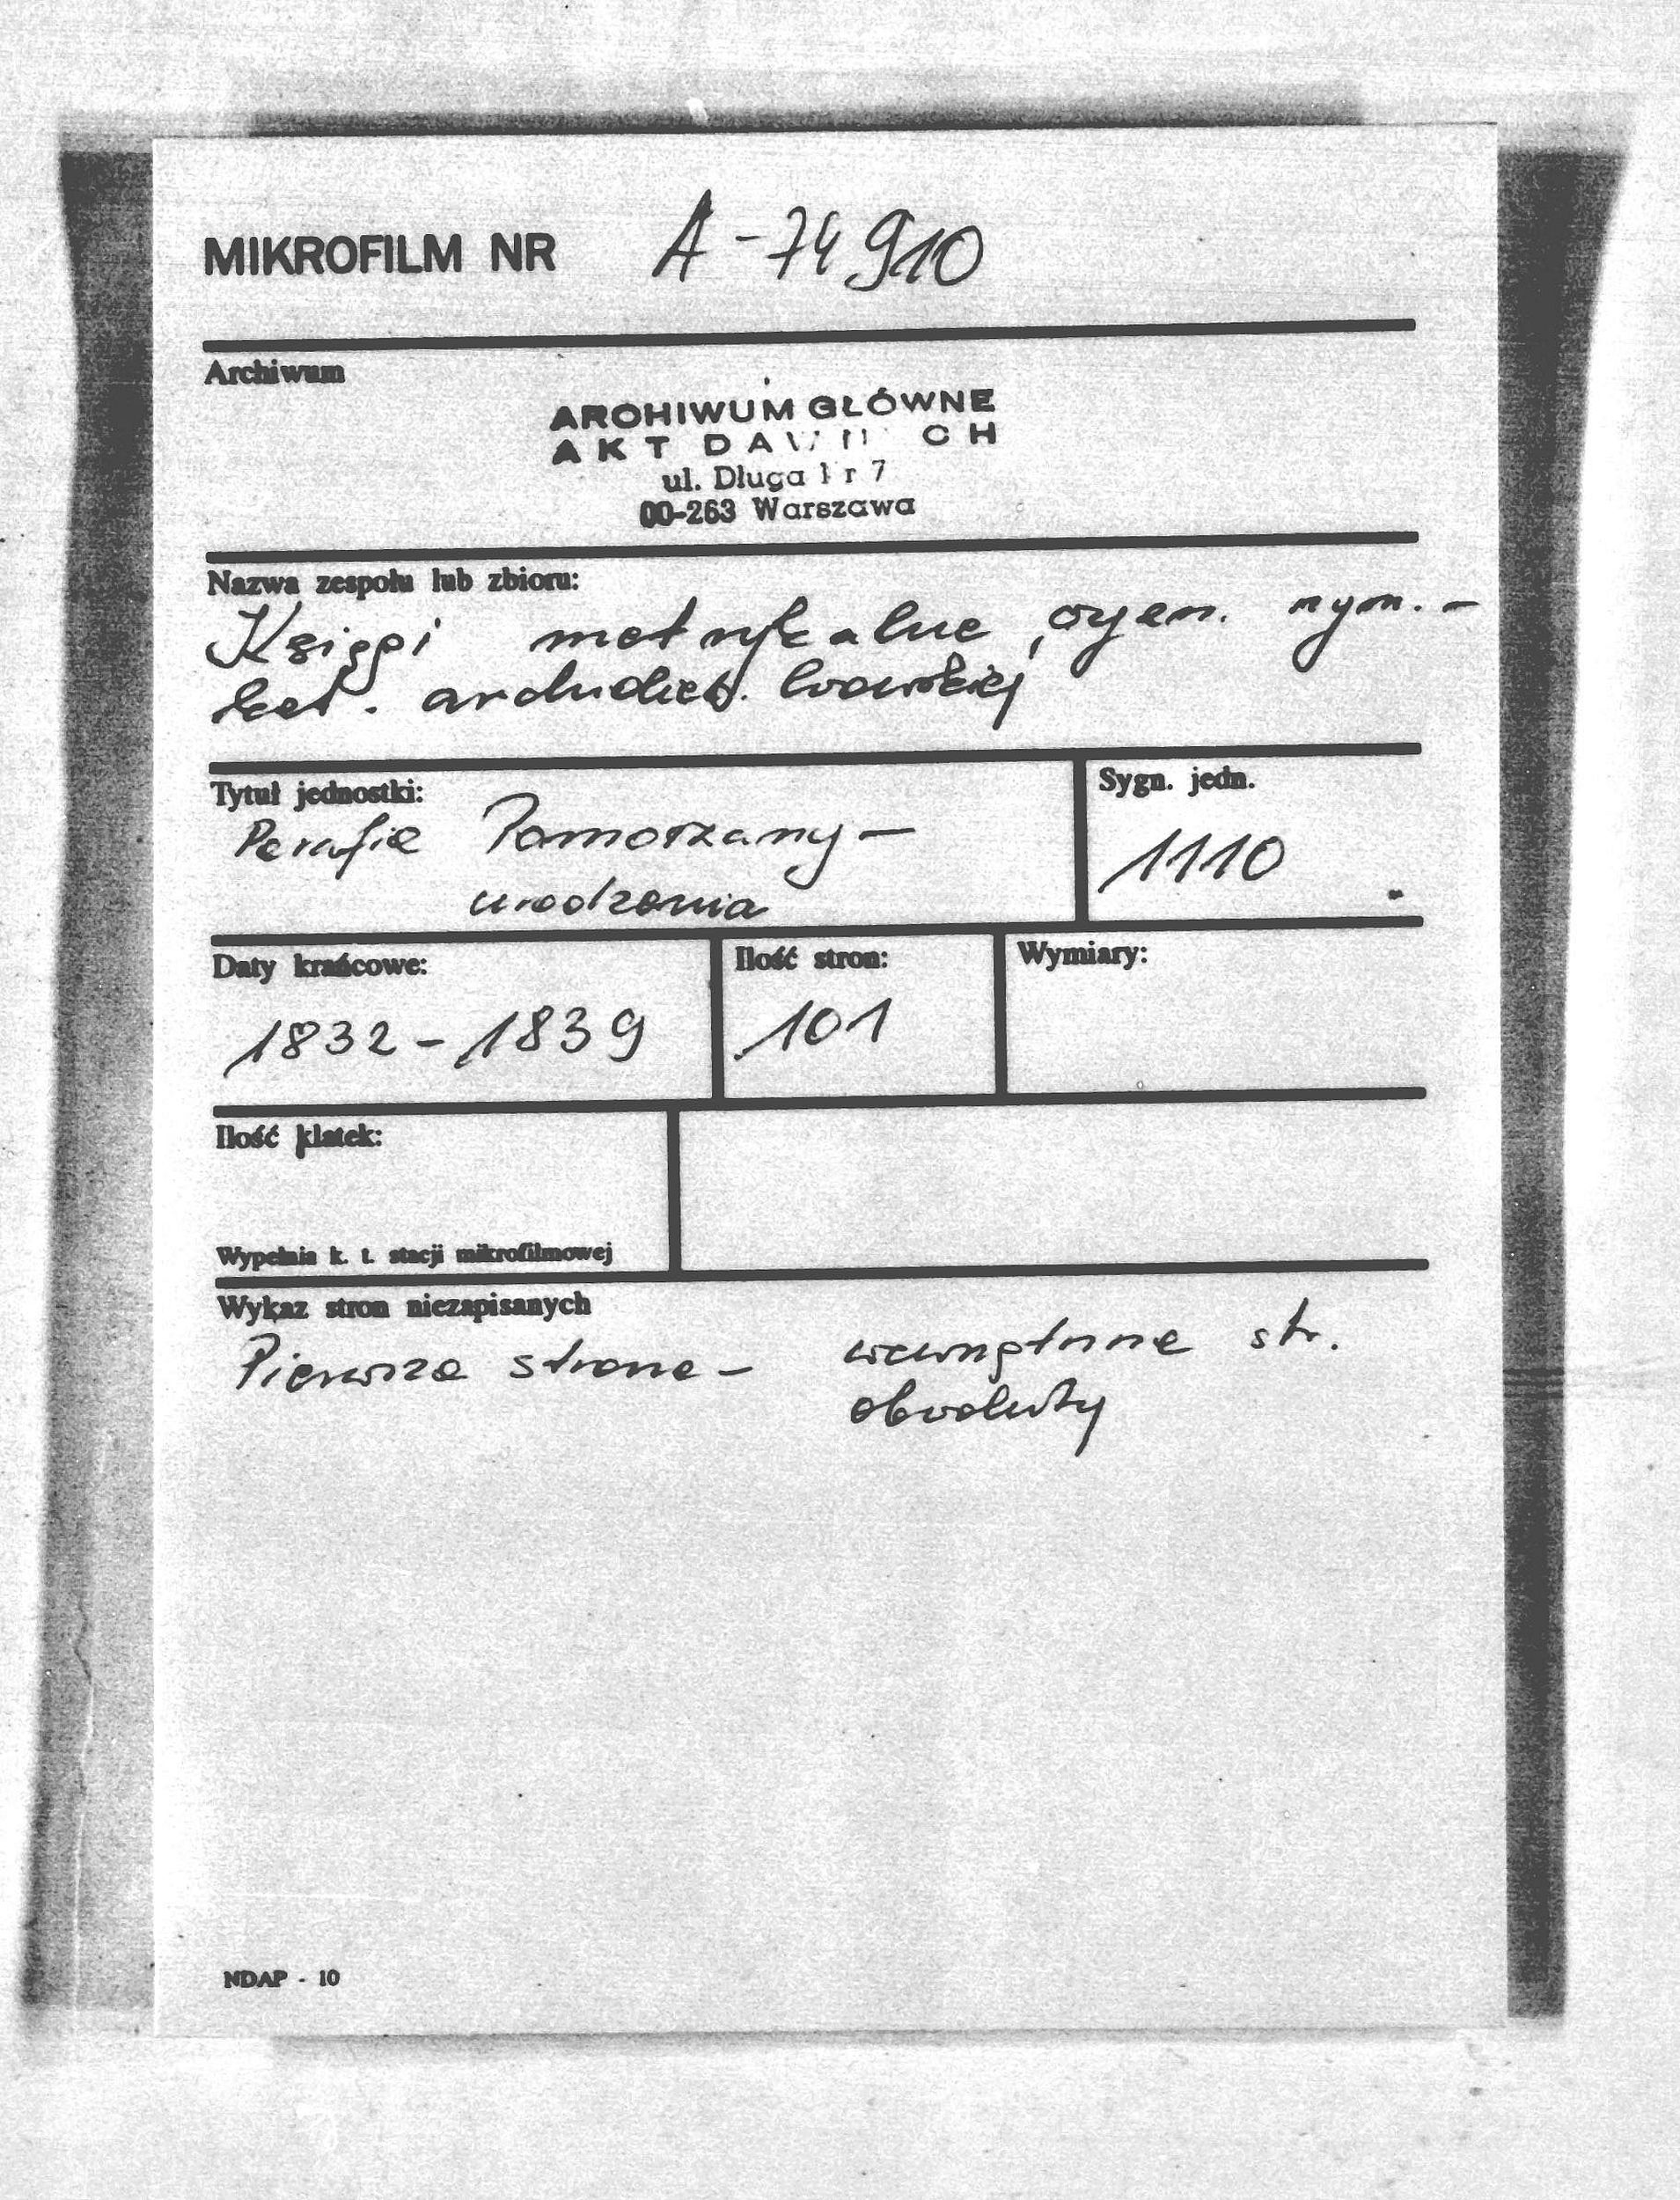 MIKROFILM NR A-74910
Archiwum
ARCHIWUM GŁÓWNE
AKT DAWNYCH
ul. Długa Nr 7
00-263 Warszawa
Nazwa zespołu lub zbioru:
Księgi metrykalne rym.-
kat. archidiec. lwowskiej
Tytuł jednostki:
Parafia Pomorzany -
urodzenia
Sygn. jedn.
1110
Daty krańcowe:
1832-1839
Ilość stron:
101
Wymiary:
Ilość klatek:
Wypełnia k. t. stacji mikrofilmowej
Wykaz stron niezapisanych
Pierwsza strona - wewnętrzna str.
obwoluty
NDAP - 10